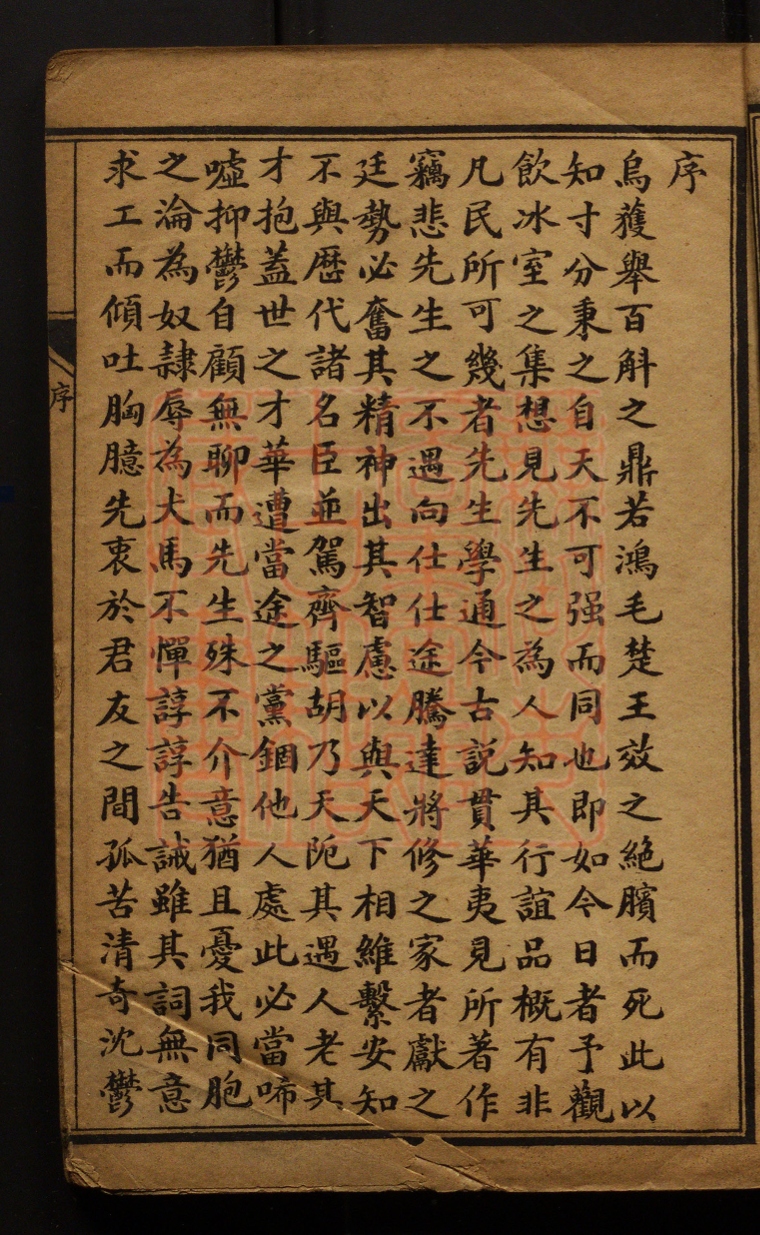 序
烏蒦舉百斛之鼎若鴻毛楚王效之絕臏而死此以
知寸分秉之自天不可强而同也即如今日者予觀
飲冰室之集想見先生之為人知其行誼品概有非
凡民所可幾者先生學通今古說貫華夷見所著作
竊悲先生之不遇向仕仕途騰達將修之家者獻之
廷勢必奮其精神出其智慮以與天下相維繫安知
不與歷代諸名臣並駕齊驅胡乃天阨其遇人老其
才抱蓋世之才華遭當途之黨錮他人處此必當啼
噓抑鬱自顧無聊而先生殊不介意猶且憂我同胞
之淪為奴隷辱為犬馬不憚諄諄告誡雖其詞無意
求工而傾吐胸臆先衷於君友之間孤苦清奇沈鬱
序